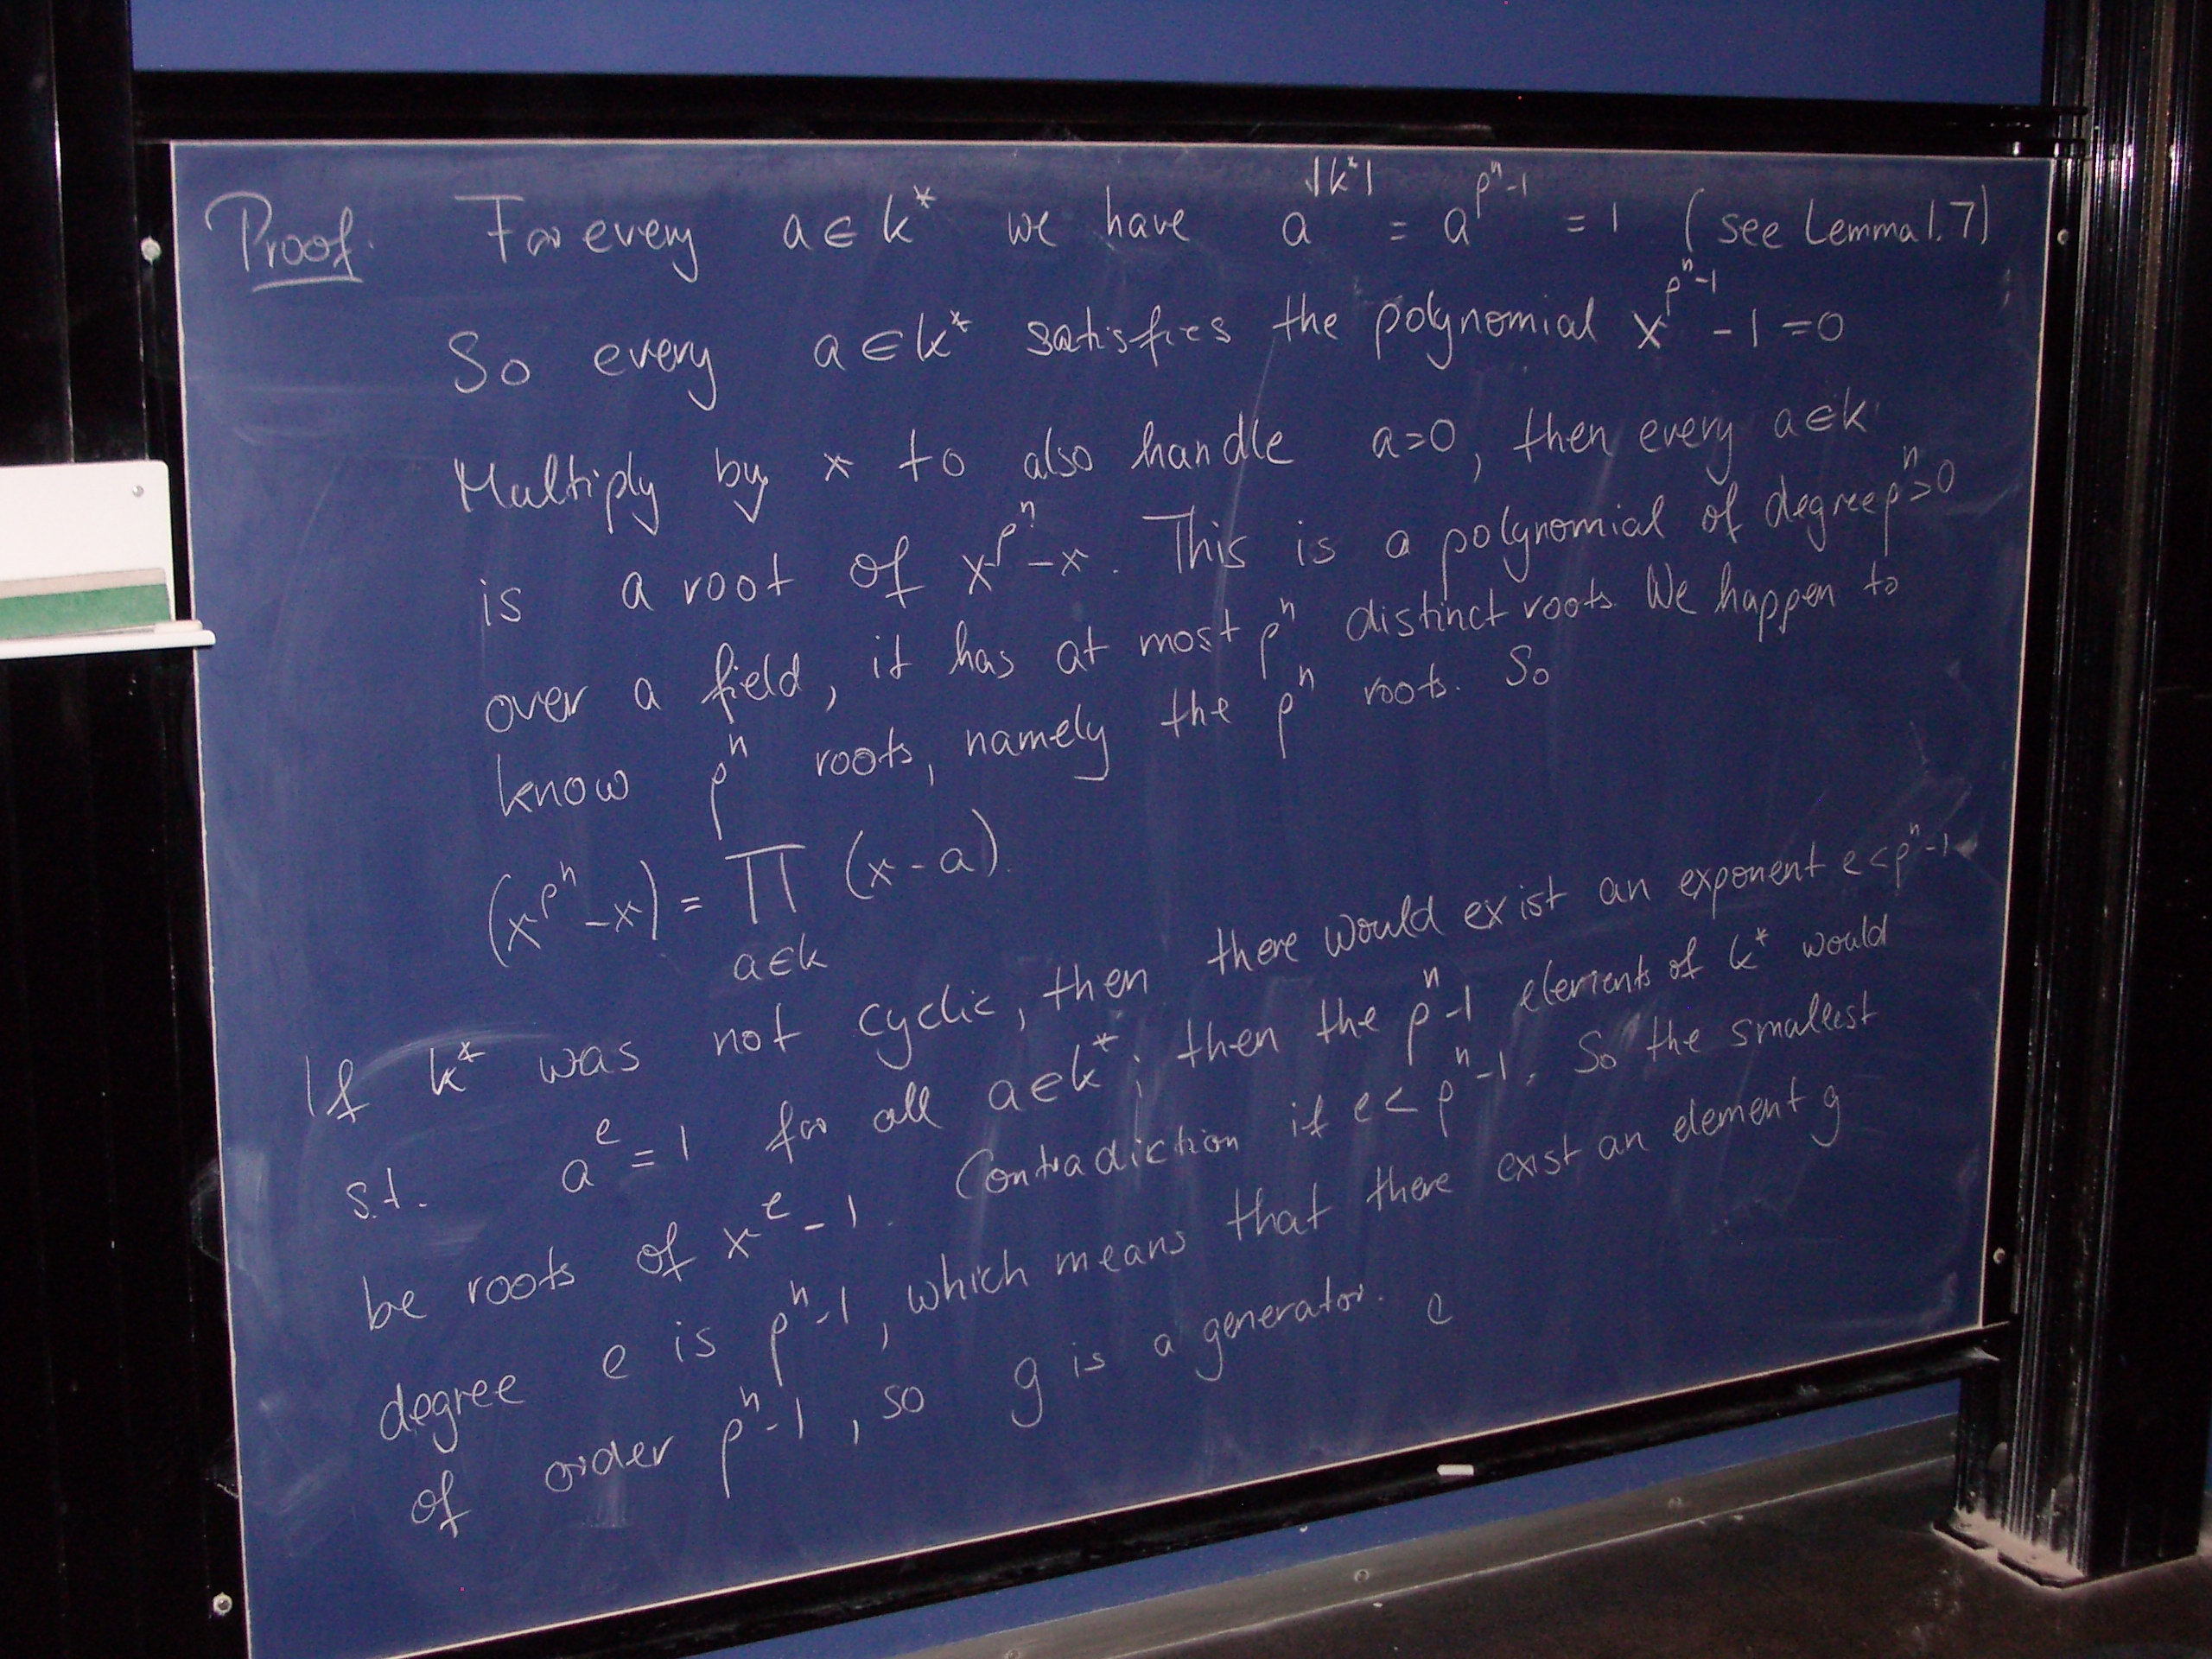 Proof. For every a ∈ k* we have a^|k*| = a^(p^n-1) = 1 (see Lemma 1.7)
So every a ∈ k* satisfies the polynomial x^(p^n-1) - 1 = 0
Multiply by x to also handle a=0, then every a ∈ k
is a root of x^(p^n) - x. This is a polynomial of degree p^n > 0
over a field, it has at most p^n distinct roots. We happen to
know p^n roots, namely the p^n roots. So
(x^(p^n) - x) = ∏ (x - a).
a ∈ k
If k* was not cyclic, then there would exist an exponent e < p^n - 1
s.t. a^e = 1 for all a ∈ k*; then the p^n - 1 elements of k* would
be roots of x^e - 1. Contradiction if e < p^n - 1. So the smallest
degree e is p^n - 1, which means that there exist an element g
of order p^n - 1, so g is a generator.